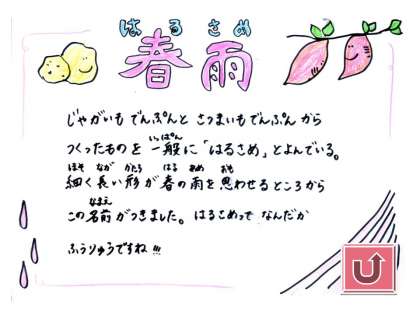 はるさめ
春雨
じゃがいもでんぷんと さつまいもでんぷんから
いっぱん
つくったものを 一般に「はるさめ」とよんでいる。
ほそ なが かたち はる あめ おも
細く長い形が春の雨を思わせるところから
なまえ
この名前がつきました。はるさめって なんだか
ふうりゅうですね!!!